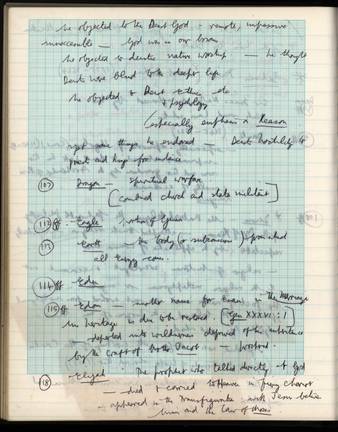 he objected to the Deist God – remote, impassive
inaccessible — God was in our bosom
he objected to deistic nature worship — he thought
Deists were blind to the deeper life
he objected to Deist ethics etc
+ psychology
(especially emphasis on Reason
some things he endorsed — Deists hostility to
priest and kings for instance
(107) Dragon — spiritual warfare
[combined church and state militant]
(113) ff Eagle portion of Genius
Earth — the body (or subconscious) from which
all Energy comes.
(114) ff Eden
(115) ff Edom — another name for Esau, in the Marriage
his heritage is due to be restored. [Gen XXXVI : 1]
– departed into wilderness deprived of the inheritance
by the craft of brother Jacob —
(118) Elijah The prophet who talked directly to God
— died & carried to Heaven in fiery chariot
— appeared in the Transfiguration with Jesus
him and the Law of Moses